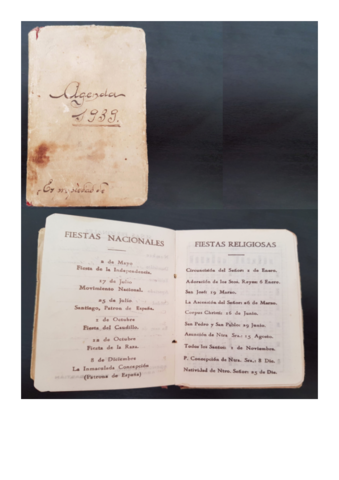 Agenda
1939.
FIESTAS NACIONALES
2 de Mayo
Fiesta de la Independencia.
17 de Julio
Movimiento Nacional.
25 de Julio
Santiago, Patron de España.
1 de Octubre
Fiesta del Caudillo.
12 de Octubre
Fiesta de la Raza.
8 de Diciembre
La Inmaculada Concepción
(Patrona de España)
FIESTAS RELIGIOSAS
Circuncisión del Señor: 1 de Enero.
Adoración de los Stos. Reyes: 6 Enero.
San José: 19 Marzo.
La Ascensión del Señor: 26 de Mayo.
Corpus Christi: 16 de Junio.
San Pedro y San Pablo: 29 Junio.
Asunción de Ntra. Sra.: 15 Agosto.
Todos los Santos: 1 de Noviembre.
P. Concepción de Ntra. Sra.: 8 Dic.
Natividad de Ntro. Señor: 25 de Dic.